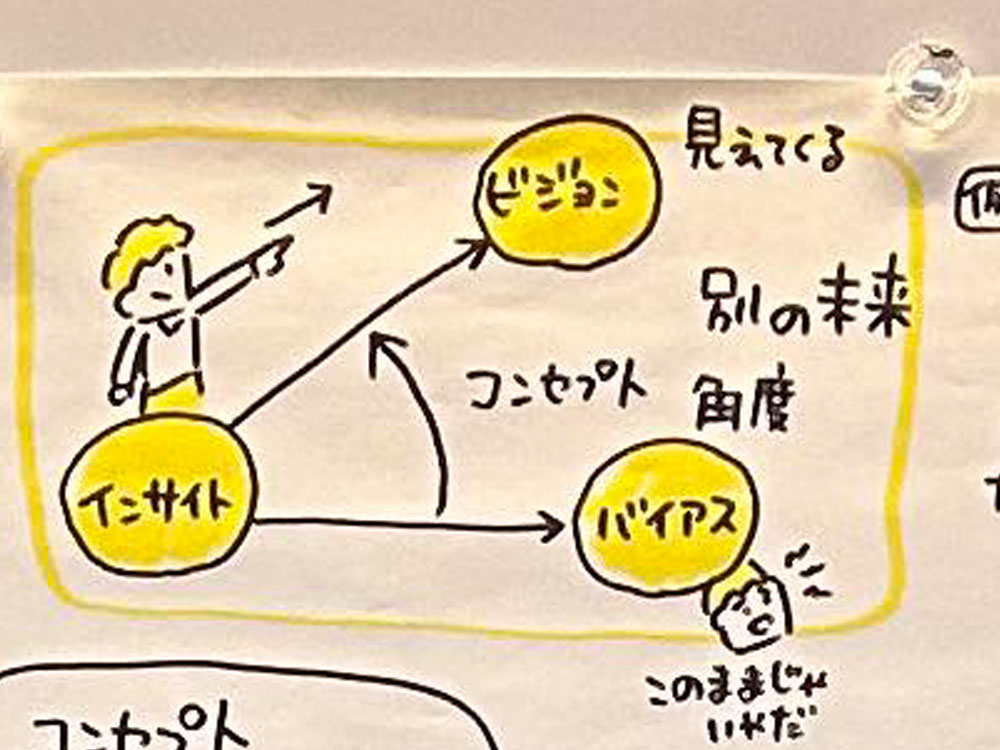 見えてくる
ビジョン
別の未来
コンセプト
角度
インサイト
バイアス
このままじゃ
いやだ
コンセプト